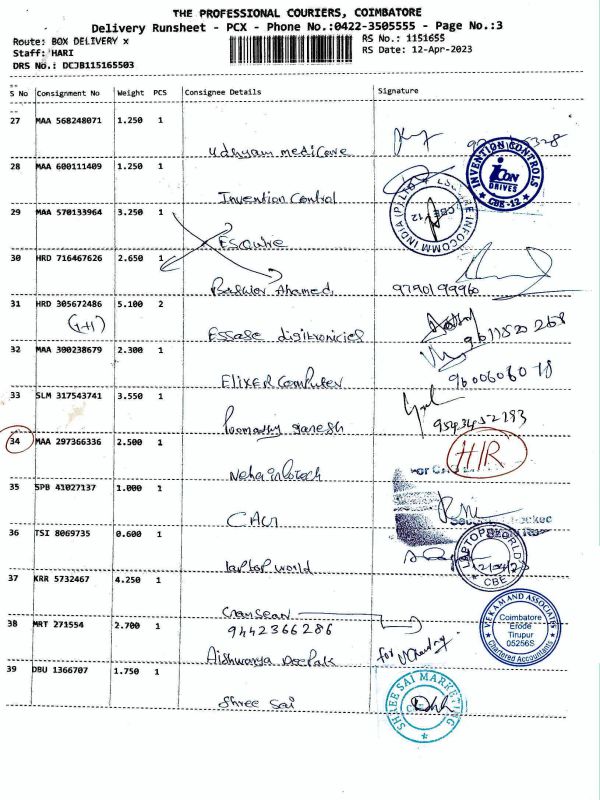 THE PROFESSIONAL COURIERS, COIMBATORE
Delivery Runsheet - PCX - Phone No.:0422-3505555 - Page No.:3
Route: BOX DELIVERY x RS No.: 1151655
Staff: HARI RS Date: 12-Apr-2023
DRS No.: DCJB115165503
S No Consignment No Weight PCS Consignee Details Signature
27 MAA 568248071 1.250 1
Udhyam medicare
28 MAA 600111409 1.250 1
INVENTION CONTROLS
iCON
DRIVES
CBE-12
Invention Control
29 MAA 570133964 3.250 1
INFOCOMM INDIA (P) LTD
CBE-12
Esquire
30 HRD 716467626 2.650 1
Ahamed 9790199960
31 HRD 305672486 5.100 2
(1+1)
Essase digitronicies
32 MAA 300238679 2.300 1
Elixer Computer
33 SLM 317543741 3.550 1
ganesh
34 MAA 297366336 2.500 1
Neha infotech
35 SPB 41027137 1.000 1
36 TSI 8069735 0.600 1
LAPTOP WORLD
CBE
laptop world
37 KRR 5732467 4.250 1
9442366286
VEKAM AND ASSOCIATES
Coimbatore
Erode
Tirupur
05256S
Chartered Accountants
38 MRT 271554 2.700 1
Aishwarya Deepak for
39 DBU 1366707 1.750 1
SHREE SAI MARKETING
Shree Sai